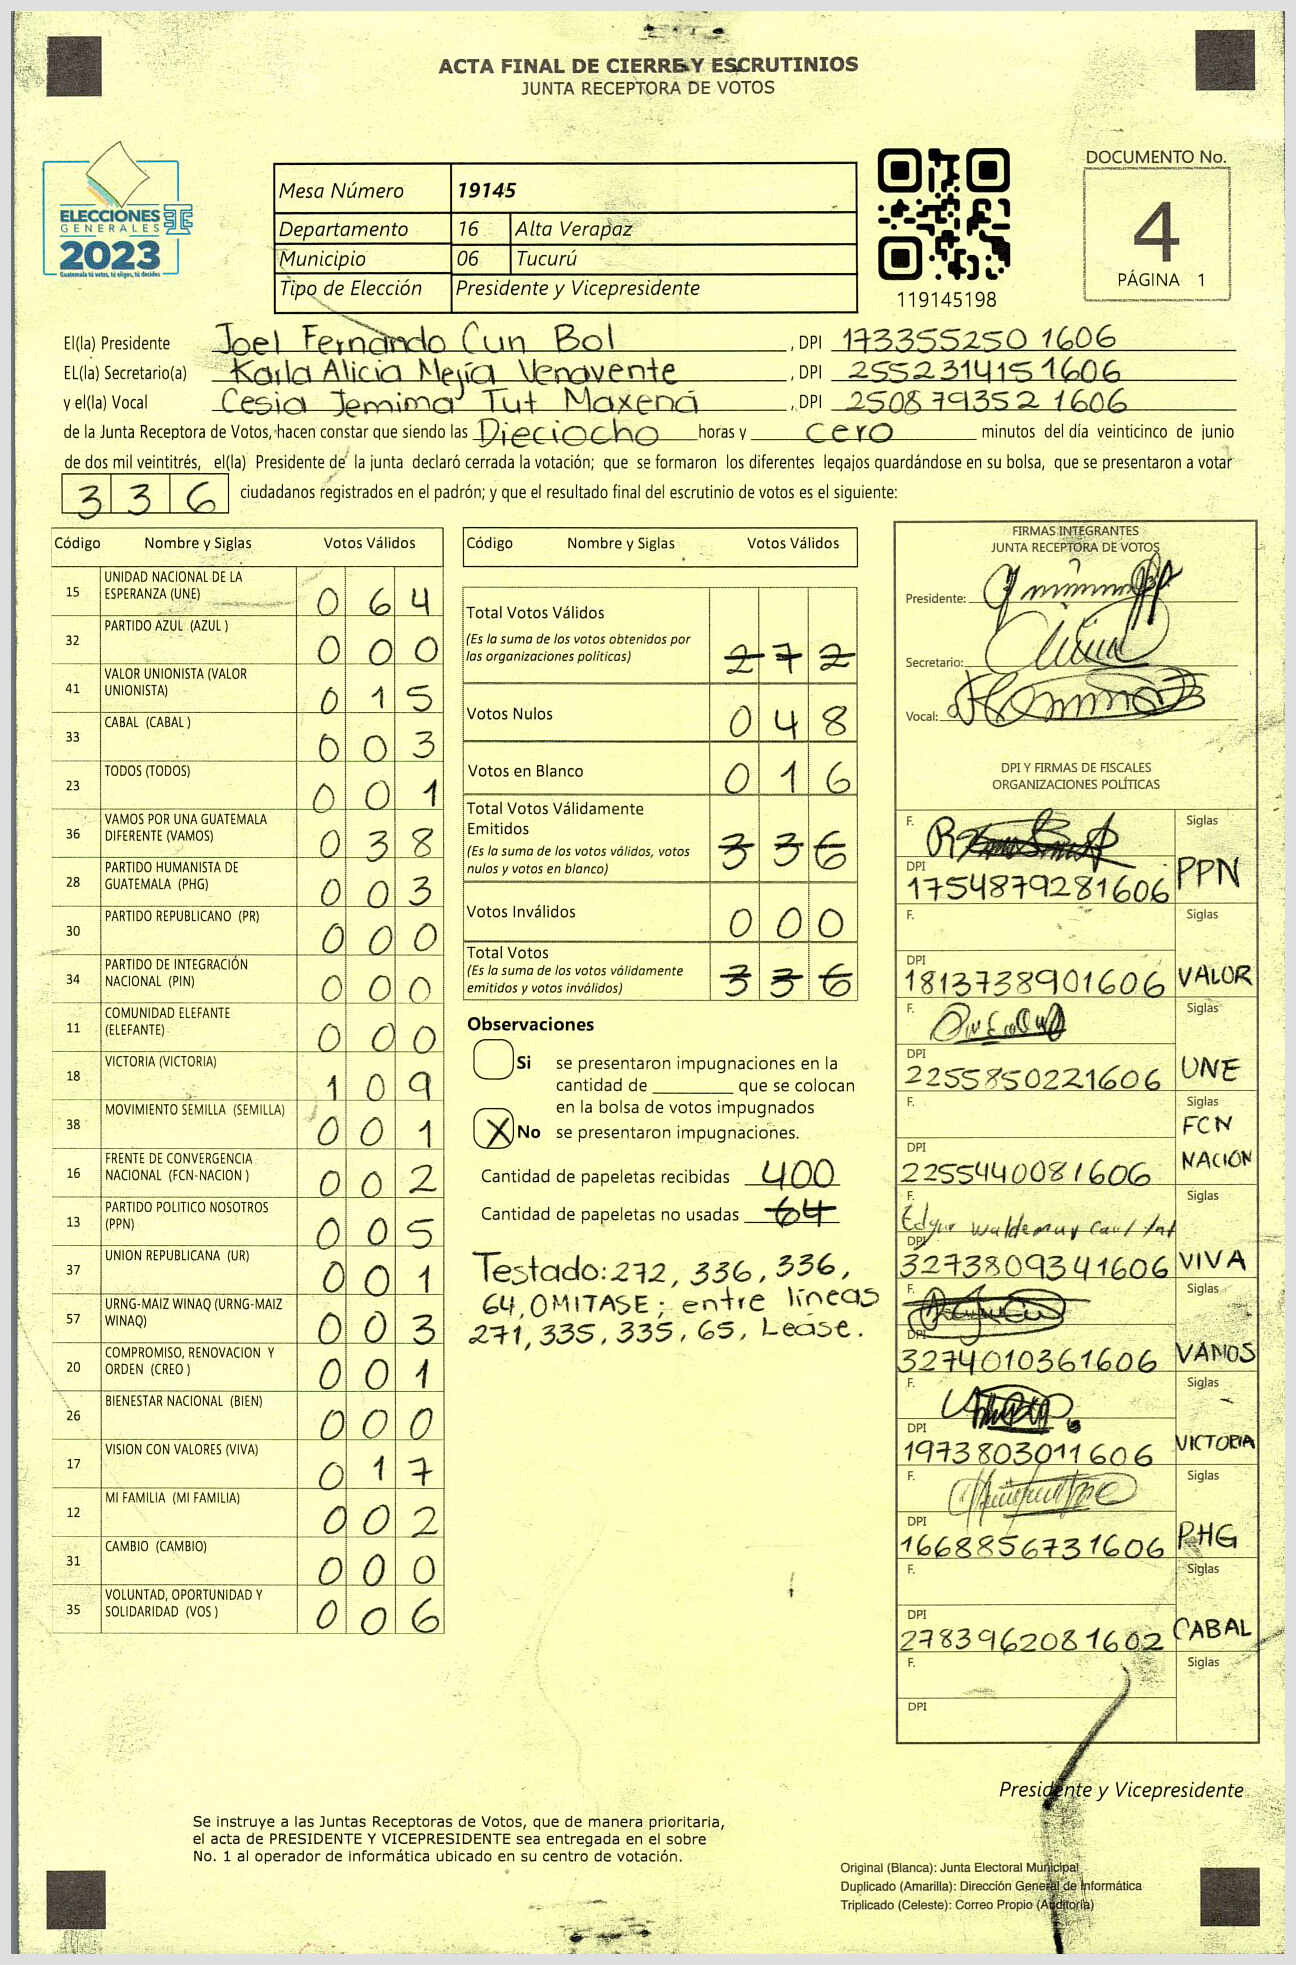 ACTA FINAL DE CIERRE Y ESCRUTINIOS
JUNTA RECEPTORA DE VOTOS
ELECCIONES
GENERALES
2023
Guatemala tú votas, tú eliges, tú decides
Mesa Número 19145
Departamento 16 Alta Verapaz
Municipio 06 Tucurú
Tipo de Elección Presidente y Vicepresidente
119145198
DOCUMENTO No.
4
PÁGINA 1
El(la) Presidente Joel Fernando Cun Bol, DPI 173355250 1606
EL(la) Secretario(a) Karla Alicia Mejía Venavente, DPI 2552314151606
y el(la) Vocal Cesia Jemima Tut Maxená, DPI 250879352 1606
de la Junta Receptora de Votos, hacen constar que siendo las Dieciocho horas y cero minutos del día veinticinco de junio
de dos mil veintitrés, el(la) Presidente de la junta declaró cerrada la votación; que se formaron los diferentes legajos guardándose en su bolsa, que se presentaron a votar
336 ciudadanos registrados en el padrón; y que el resultado final del escrutinio de votos es el siguiente:
Código Nombre y Siglas Votos Válidos
15 UNIDAD NACIONAL DE LA ESPERANZA (UNE) 064
32 PARTIDO AZUL (AZUL ) 000
41 VALOR UNIONISTA (VALOR UNIONISTA) 015
33 CABAL (CABAL ) 003
23 TODOS (TODOS) 001
36 VAMOS POR UNA GUATEMALA DIFERENTE (VAMOS) 038
28 PARTIDO HUMANISTA DE GUATEMALA (PHG) 003
30 PARTIDO REPUBLICANO (PR) 000
34 PARTIDO DE INTEGRACIÓN NACIONAL (PIN) 000
11 COMUNIDAD ELEFANTE (ELEFANTE) 000
18 VICTORIA (VICTORIA) 109
38 MOVIMIENTO SEMILLA (SEMILLA) 001
16 FRENTE DE CONVERGENCIA NACIONAL (FCN-NACION ) 002
13 PARTIDO POLITICO NOSOTROS (PPN) 005
37 UNION REPUBLICANA (UR) 001
57 URNG-MAIZ WINAQ (URNG-MAIZ WINAQ) 003
20 COMPROMISO, RENOVACION Y ORDEN (CREO ) 001
26 BIENESTAR NACIONAL (BIEN) 000
17 VISION CON VALORES (VIVA) 017
12 MI FAMILIA (MI FAMILIA) 002
31 CAMBIO (CAMBIO) 000
35 VOLUNTAD, OPORTUNIDAD Y SOLIDARIDAD (VOS ) 006
Código Nombre y Siglas Votos Válidos
Total Votos Válidos 272
(Es la suma de los votos obtenidos por
las organizaciones políticas)
Votos Nulos 048
Votos en Blanco 016
Total Votos Válidamente
Emitidos 336
(Es la suma de los votos válidos, votos
nulos y votos en blanco)
Votos Inválidos 000
Total Votos 336
(Es la suma de los votos válidamente
emitidos y votos inválidos)
Observaciones
Si se presentaron impugnaciones en la
cantidad de ________ que se colocan
en la bolsa de votos impugnados
X No se presentaron impugnaciones.
Cantidad de papeletas recibidas 400
Cantidad de papeletas no usadas 64
Testado: 272, 336, 336,
64, OMITASE; entre líneas
271, 335, 335, 65, Lease.
FIRMAS INTEGRANTES
JUNTA RECEPTORA DE VOTOS
Presidente:
Secretario:
Vocal:
DPI Y FIRMAS DE FISCALES
ORGANIZACIONES POLÍTICAS
F. Siglas
DPI 1754879281606 PPN
F. Siglas
DPI 1813738901606 VALOR
F. Siglas
DPI 2255850221606 UNE
F. Siglas
FCN
DPI 2255440081606 NACION
F. Edgar Waldemar Siglas
DPI 3273809341606 VIVA
F. Siglas
DPI 3274010361606 VAMOS
F. Siglas
DPI 1973803011606 VICTORIA
F. Siglas
DPI 1668856731606 PHG
F. Siglas
DPI 2783962081602 CABAL
F. Siglas
DPI
Presidente y Vicepresidente
Se instruye a las Juntas Receptoras de Votos, que de manera prioritaria,
el acta de PRESIDENTE Y VICEPRESIDENTE sea entregada en el sobre
No. 1 al operador de informática ubicado en su centro de votación.
Original (Blanca): Junta Electoral Municipal
Duplicado (Amarilla): Dirección General de Informática
Triplicado (Celeste): Correo Propio (Auditoría)